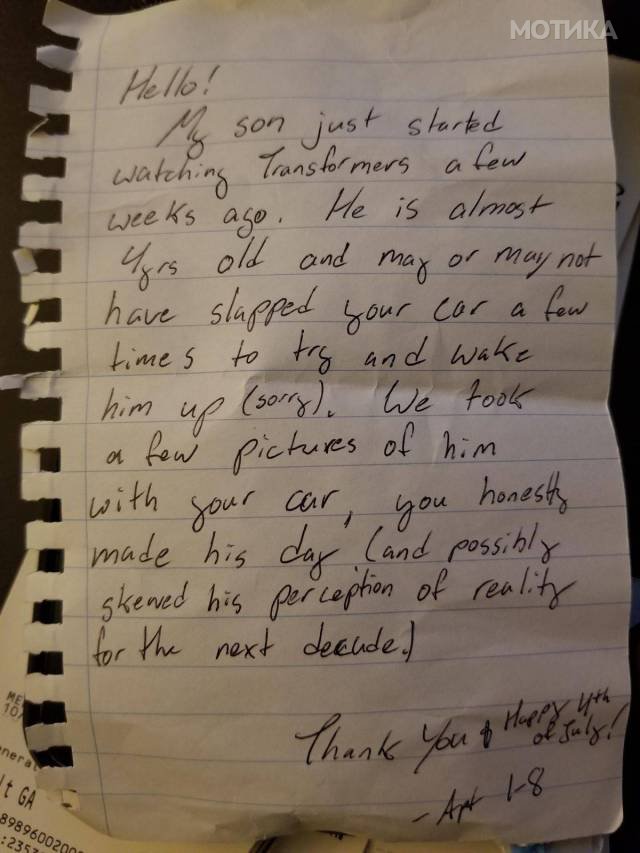 МОТИКА
Hello!
My son just started
watching Transformers a few
weeks ago. He is almost
4yrs old and may or may not
have slapped your car a few
times to try and wake
him up (sorry). We took
a few pictures of him
with your car, you honestly
made his day (and possibly
skewed his perception of reality
for the next decade.)
Thank You & Happy 4th
of July!
- Apt 1-8
ME
10/
enera
lt GA
8989600200
:235